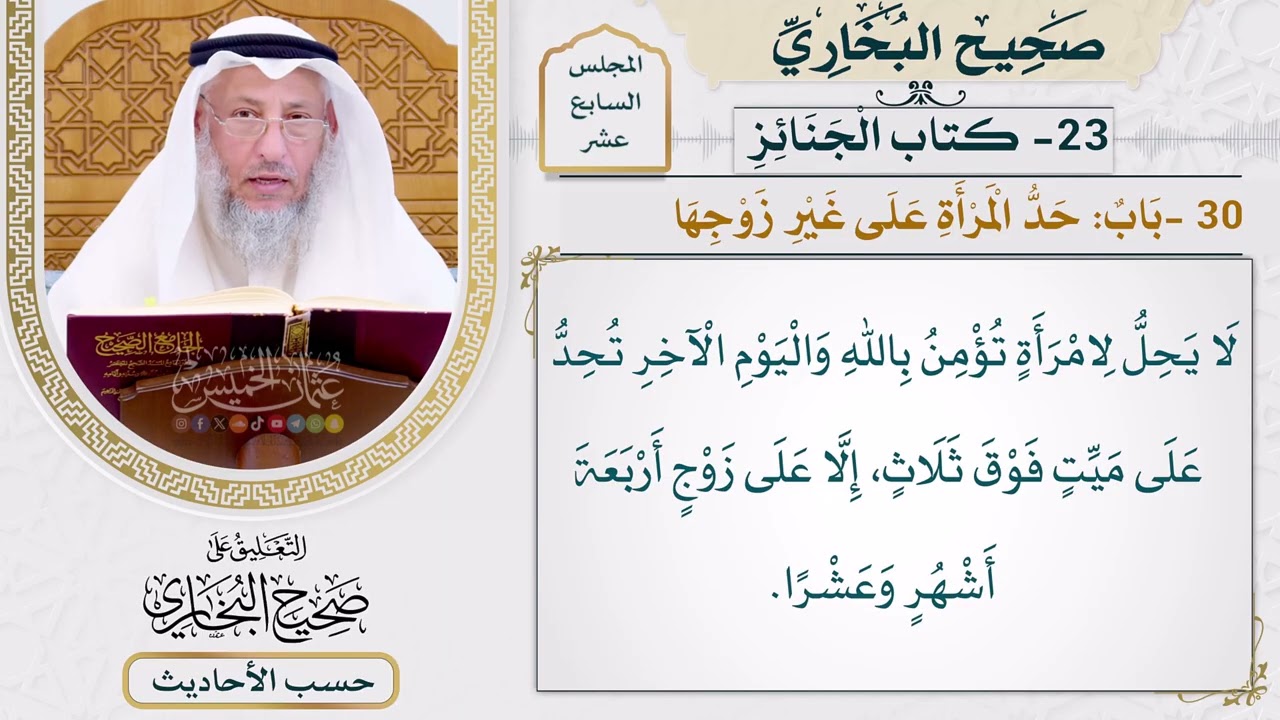 صَحِيح البُخَارِيِّ
المجلس
السابع
عشر
23- كتاب الْجَنَائِزِ
30 -بَابٌ: حَدُّ الْمَرْأَةِ عَلَى غَيْرِ زَوْجِهَا
لَا يَحِلُّ لِامْرَأَةٍ تُؤْمِنُ بِاللهِ وَالْيَوْمِ الْآخِرِ تُحِدُّ
عَلَى مَيِّتٍ فَوْقَ ثَلَاثٍ، إِلَّا عَلَى زَوْجٍ أَرْبَعَةَ
أَشْهُرٍ وَعَشْرًا.
الجامع الصحيح
عثمان الخميس
التَّعْلِيقُ عَلَى
صَحِيحِ البُخَارِي
حسب الأحاديث